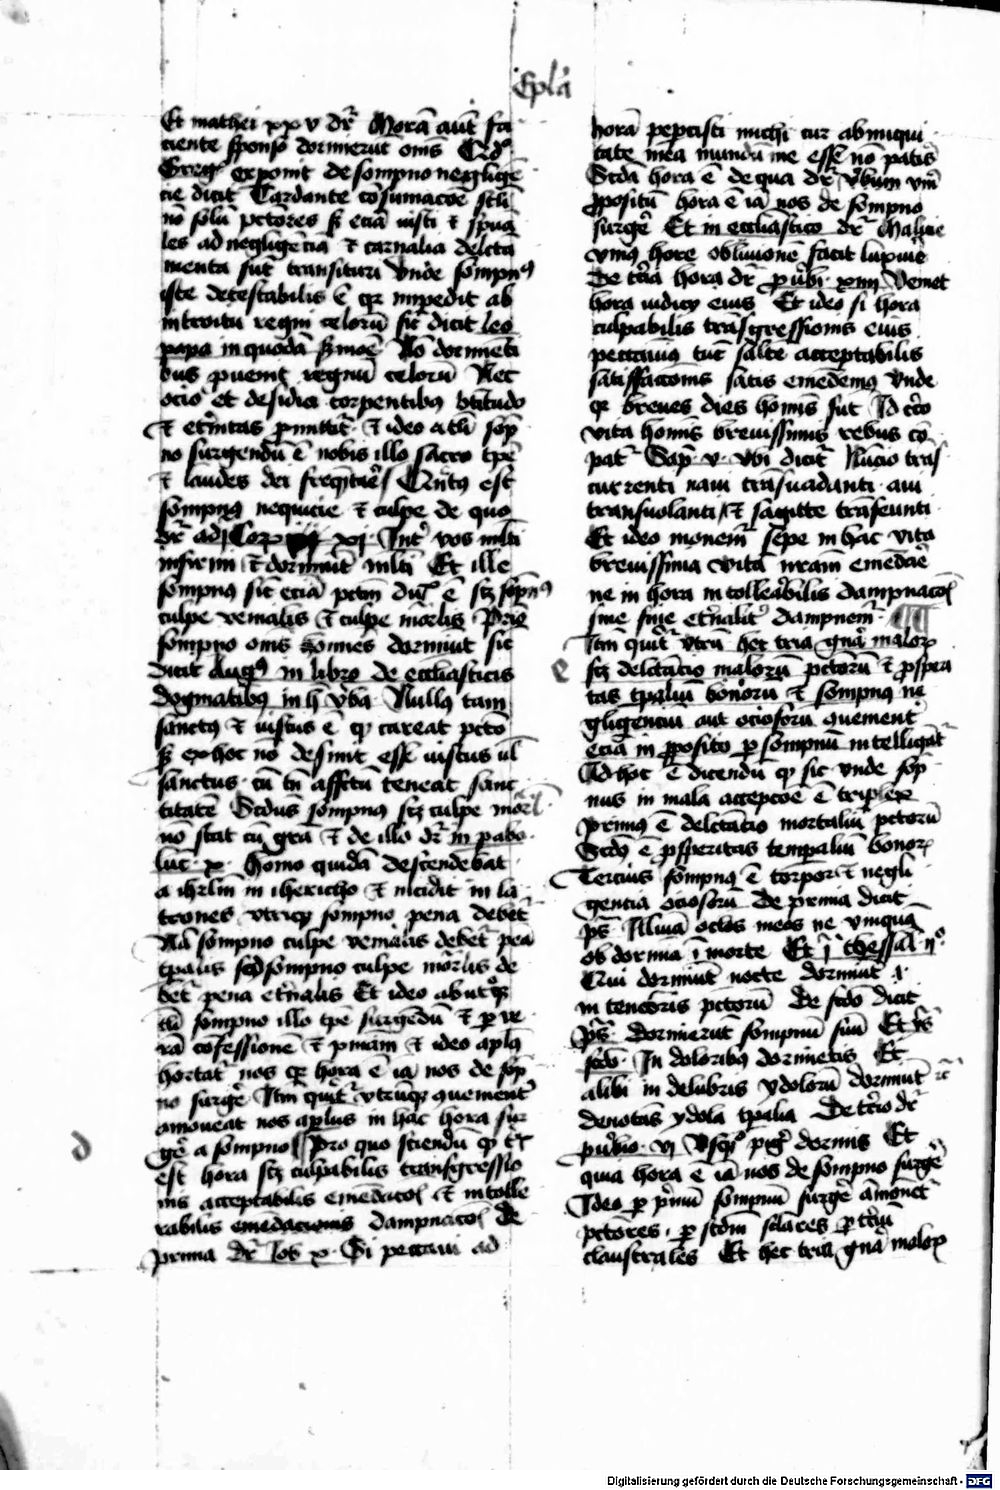 Epl'a
Et mathei xxv dr̄ Morā aūt fa
ciente sponso dormierūt om̄s Qd'
Greg' exponit de sompno negligē
cie dicit Tardante cōsumacōe scl'i
nō solū pctores sꝫ eciā iusti ⁊ spūa
les ad negligēcia ⁊ carnalia delcta
menta sūt transituri Vnde sompn9
iste detestabilis ē qꝛ impedit ab
introitu regni celorū sic̄ dicit leo
papa in quodā sꝫmoē Nō dormiēti
bus ꝓuenit regnū celorū Nec
ocio et desidia torpentibꝰ btītudo
⁊ et'nitas ꝓmittit' ⁊ ideo a tli sōp
no surgendū ē nobis illo sacro tpē
⁊ laudes dei freqn̄tar' Quīt9 est
sompn9 nequicie ⁊ culpe de quo
dr̄ ad Cor xj Int' vos ml'ti
infirmi ⁊ dormiūt ml'ti Et ille
sompn9 sic̄ eciā pctm̄ dup' ē scꝫ sōpn9
culpe venialis ⁊ culpe mōrlis Prīo
sompno om̄s homies dormiūt sic̄
dicit Aug9 in libro de ecclīasticis
dogmatibꝰ in h̄ v'ba Nullꝰ tam
sanctus ⁊ iustus ē qͥ careat pctō
sꝫ ex hoc nō desinit esse iustus ul'
sanctus cū tn̄ affctū teneat sanc
titatē Scdus sompn9 scꝫ culpe mōrl'
nō stat cū grā ⁊ de illo dr̄ in pabo
luc̄ x Homo quidā descendebat
a ihrl̄m in ihericho ⁊ incidit in la
trones vtriqꝫ sompno pena debet'
Nā sompno culpe venialis debet' pea
tpalis sed sompno culpe mōrlis de
bet' pena et'nalis Et ideo ab utqꝫ
tli sompno illo tpē surgēdū ⁊ ꝑ ve
rā cōfessionē ⁊ pniām ⁊ ideo apl's
hortat' nos qꝛ hora ē iā nos de sōp
no surge' Itm̄ quīt' vtrūqꝫ queniēt'
amoueat nos ap'lus in hac hora sur
ge' a sompno Pro quo sciendū qͥ t'x
est hora scꝫ culpabilis transgressio
nis acceptabilis emēdacōs ⁊ intolle
rabilis emēdacionis dampnacōs De
prima dr̄ Iob x Si peccaui ad
horā pepcisti michi cur ab iniqui
tate mea mundū me esse nō patis'
Scda hora ē de qua dr̄ v'bum vm̄
ꝓpositū hora ē iā nos de sompno
surge' Et in ecclīastico dr̄ Malicie
vnius hore obliuionē facit luxurie
De tc'ia hora dr̄ ꝓu'bi xiiij Veniet
hora iudicij eius Et ideo si hora
culpabilis trāsgressionis eius
peccauimꝰ tūc saltē acceptabilis
satisfactōnis satis emēdemꝰ vnde
qꝛ breues dies homīs sūt Id cc'o
vita homīs breuissimis rebus cō
pat' Sap v vbi dicit' Nūcio trās
currenti naui trāsuadanti aui
transuolanti ⁊ sagitte trāseunti
Et ideo monem' sepe in hac vita
breuissima vitā nr̄am emēdare'
ne in hora intolle'abilis dampnacōs
sine fine et'nalit' dampnem'
Itm̄ quīt' vtrū hec tria gn̄a malor
scꝫ delctatio malorū pctorū ⁊ ꝓspera
tas tpaliū bonorū ⁊ sompn9 ne
gligenciū aut ociosorū quenient'
eciā in ꝓposito ꝑ sompnū intelligāt'
Ad hoc ē dicendū qͥ sic vnde sōp
nus in mala accepcōe ē triplex
primus ē delctatio mortaliū pctorū
Scds ē ꝓsperitas temp̄aliū bonor
Tercius sompn9 ē torpor ⁊ negli
gencia ociosorū De prima dicit
ps' Illuīa oclos meos ne vnquā
obdormiā ī morte Et j thessal v'
Qui dormiūt nocte dormiūt .i.
in tenebris pctorū De scdo dicit
ps' Dormierūt sompnū suū Et ys
scdo In doloribꝰ dormietis Et
alibi in delubris ydolorū dormiūt rc'
denotās ydola tpalia De tc'io dr̄
ꝓu'bio vj Vsqꝫ qͦ pig' dormis Et
quia hora ē iā nos de sompno surge'
Ideo ꝑ p'mū sompnū surge' āmonet'
pctores ꝑ scdm̄ sclares ꝑ tc'iū
claustrales Et hec tria gn̄a malor
e
d
Digitalisierung gefördert durch die Deutsche Forschungsgemeinschaft - DFG